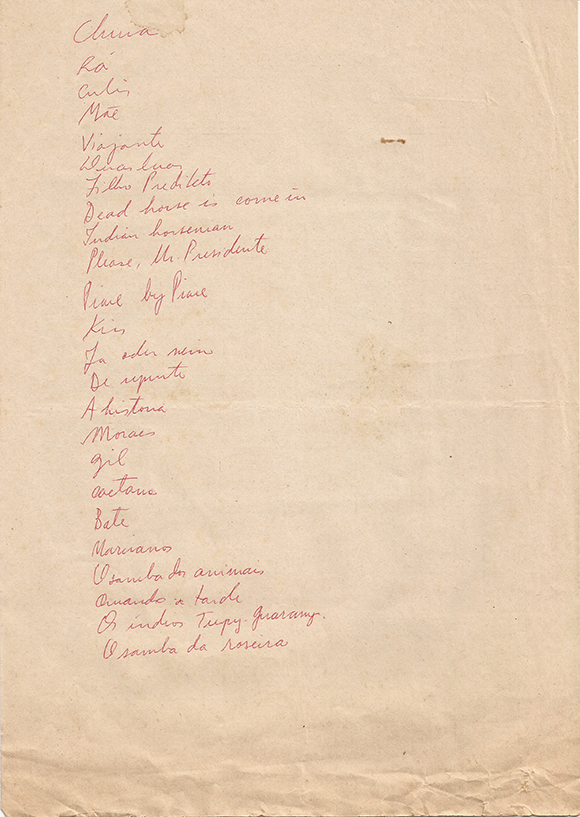 Chuva
Rá
Mãe
Viajante
Duas luas
Filho Predileto
Dead horse is come in
Indian horseman
Please, Mr. Presidente
Piace by Piace
Kiss
Ja oder nein
De repente
A historia
Moraes
Gil
Caetano
Bate
Marcianos
O samba dos animais
a tarde
Os índios Tupy-guarany.
O samba da roseira